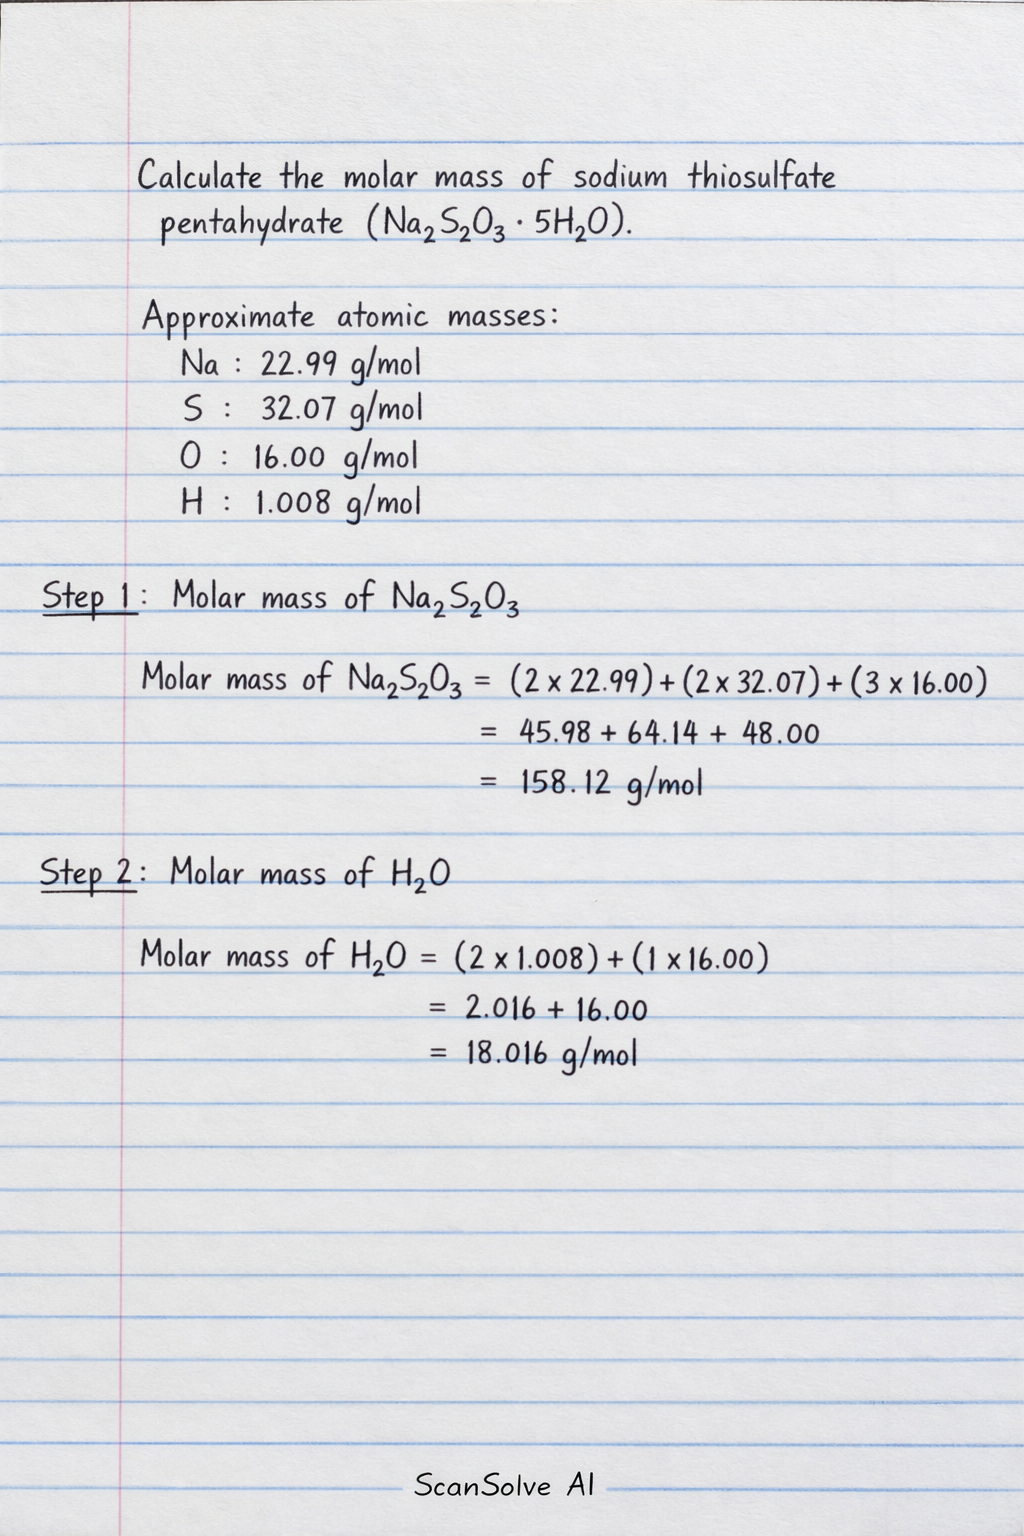 Calculate the molar mass of sodium thiosulfate
pentahydrate (Na₂S₂O₃ · 5H₂O).
Approximate atomic masses:
Na : 22.99 g/mol
S : 32.07 g/mol
O : 16.00 g/mol
H : 1.008 g/mol
Step 1: Molar mass of Na₂S₂O₃
Molar mass of Na₂S₂O₃ = (2 x 22.99) + (2 x 32.07) + (3 x 16.00)
= 45.98 + 64.14 + 48.00
= 158.12 g/mol
Step 2: Molar mass of H₂O
Molar mass of H₂O = (2 x 1.008) + (1 x 16.00)
= 2.016 + 16.00
= 18.016 g/mol
ScanSolve AI